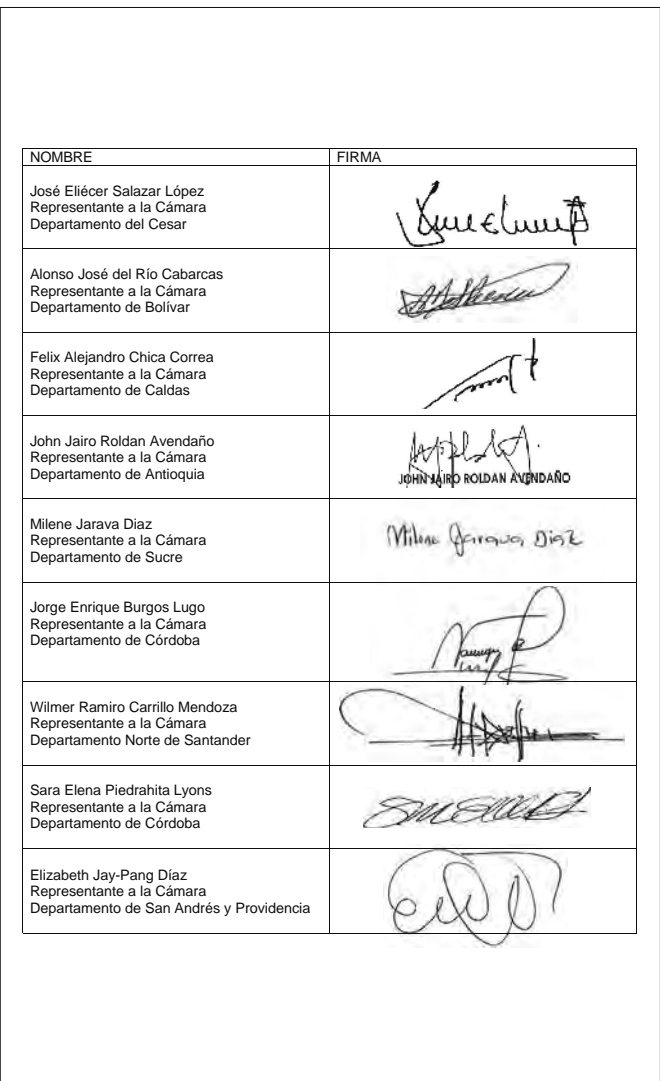 NOMBRE
FIRMA
José Eliécer Salazar López
Representante a la Cámara
Departamento del Cesar
Alonso José del Río Cabarcas
Representante a la Cámara
Departamento de Bolívar
Felix Alejandro Chica Correa
Representante a la Cámara
Departamento de Caldas
John Jairo Roldan Avendaño
Representante a la Cámara
Departamento de Antioquia
JOHN JAIRO ROLDAN AVENDAÑO
Milene Jarava Diaz
Representante a la Cámara
Departamento de Sucre
Milene Jarava Diaz
Jorge Enrique Burgos Lugo
Representante a la Cámara
Departamento de Córdoba
Wilmer Ramiro Carrillo Mendoza
Representante a la Cámara
Departamento Norte de Santander
Sara Elena Piedrahita Lyons
Representante a la Cámara
Departamento de Córdoba
Elizabeth Jay-Pang Díaz
Representante a la Cámara
Departamento de San Andrés y Providencia